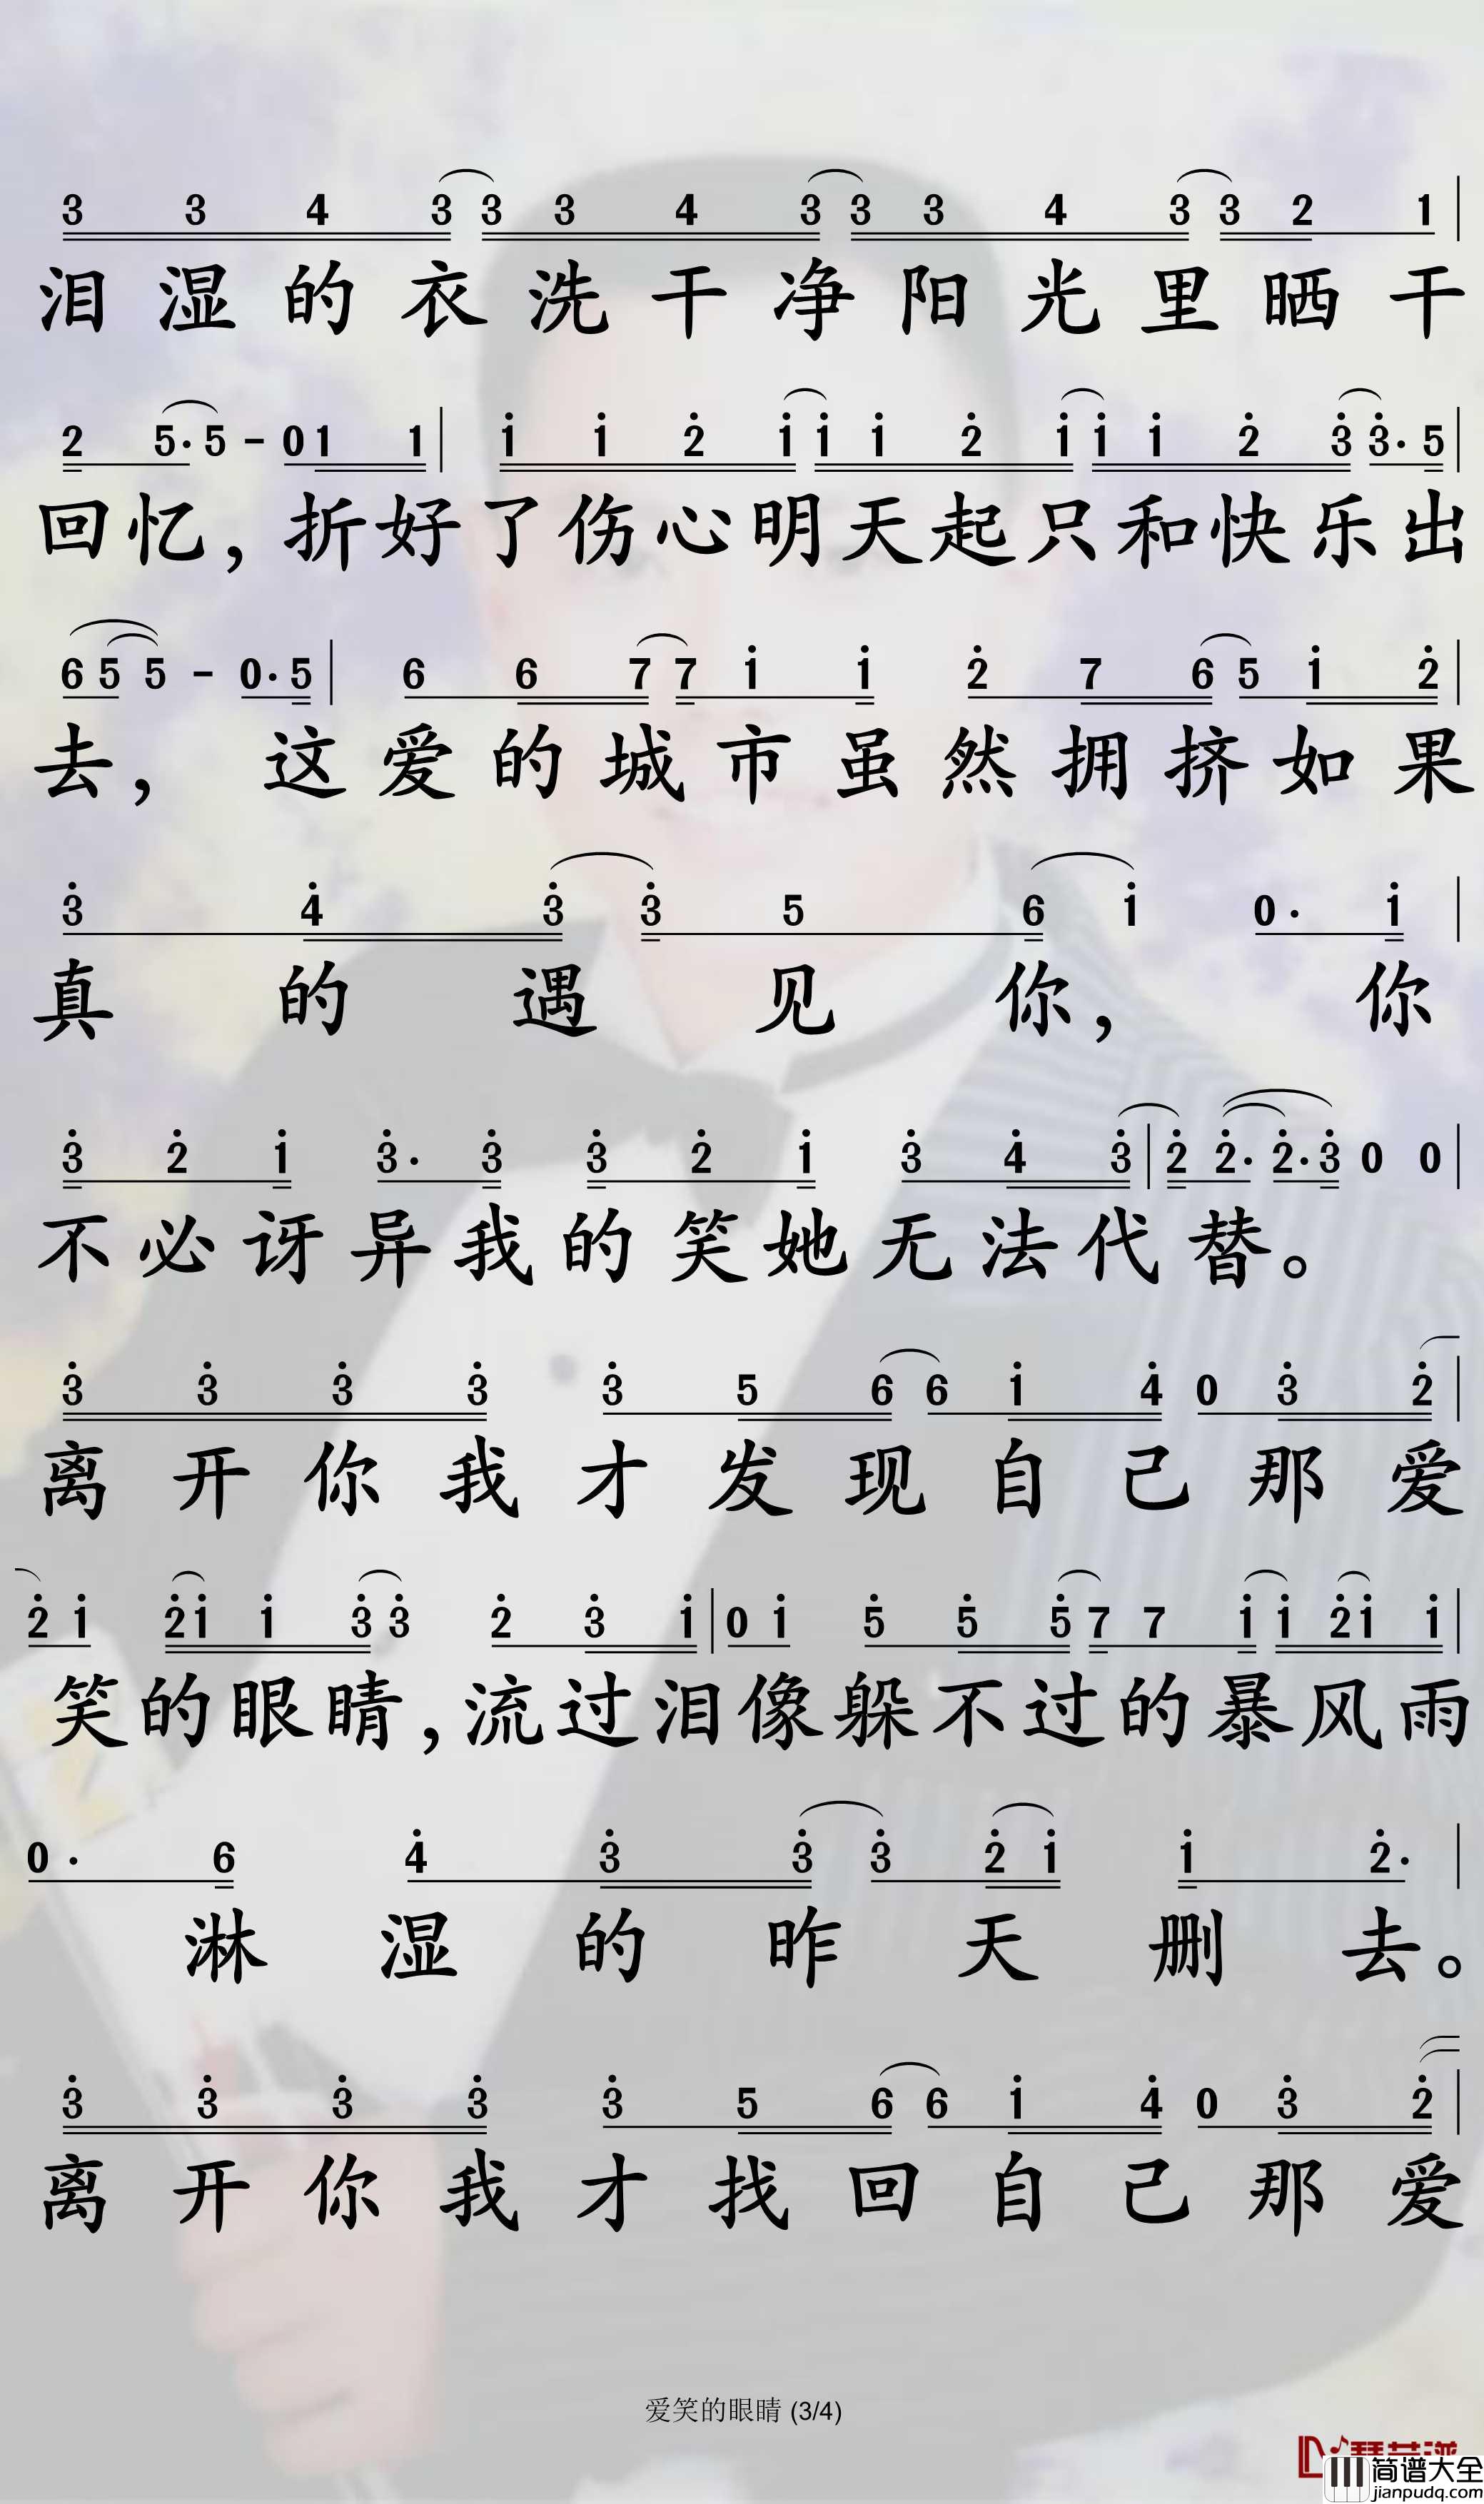 3 3 4 3 3 3 4 3 3 3 4 3 3 2 1 |
泪湿的衣洗干净阳光里晒干
2 5· 5 - 0 1 1 | i i 2̇ i i i 2̇ i i i 2̇ 3̇ 3̇· 5 |
回忆，折好了伤心明天起只和快乐出
6 5 5 - 0· 5 | 6 6 7 7 i i 2̇ 7 6 5 i 2̇ |
去，这爱的城市虽然拥挤如果
3̇ 4̇ 3̇ 3̇ 5 6 i 0· i |
真的遇见你，你
3̇ 2̇ i 3̇· 3̇ 3̇ 2̇ i 3̇ 4̇ 3̇ | 2̇ 2̇· 2̇· 3̇ 0 0 |
不必讶异我的笑她无法代替。
3̇ 3̇ 3̇ 3̇ 3̇ 5 6 6 i 4̇ 0 3̇ 2̇ |
离开你我才发现自己那爱
2̇ i 2̇ i i 3̇ 3̇ 2̇ 3̇ i | 0 i 5̇ 5̇ 5̇ 7 7 i i 2̇ i i |
笑的眼睛，流过泪像躲不过的暴风雨
0· 6 4̇ 3̇ 3̇ 3̇ 2̇ i i 2̇· |
淋湿的昨天删去。
3̇ 3̇ 3̇ 3̇ 3̇ 5 6 6 i 4̇ 0 3̇ 2̇ |
离开你我才找回自己那爱
爱笑的眼睛 (3/4)
简谱大全
jianpudq.com